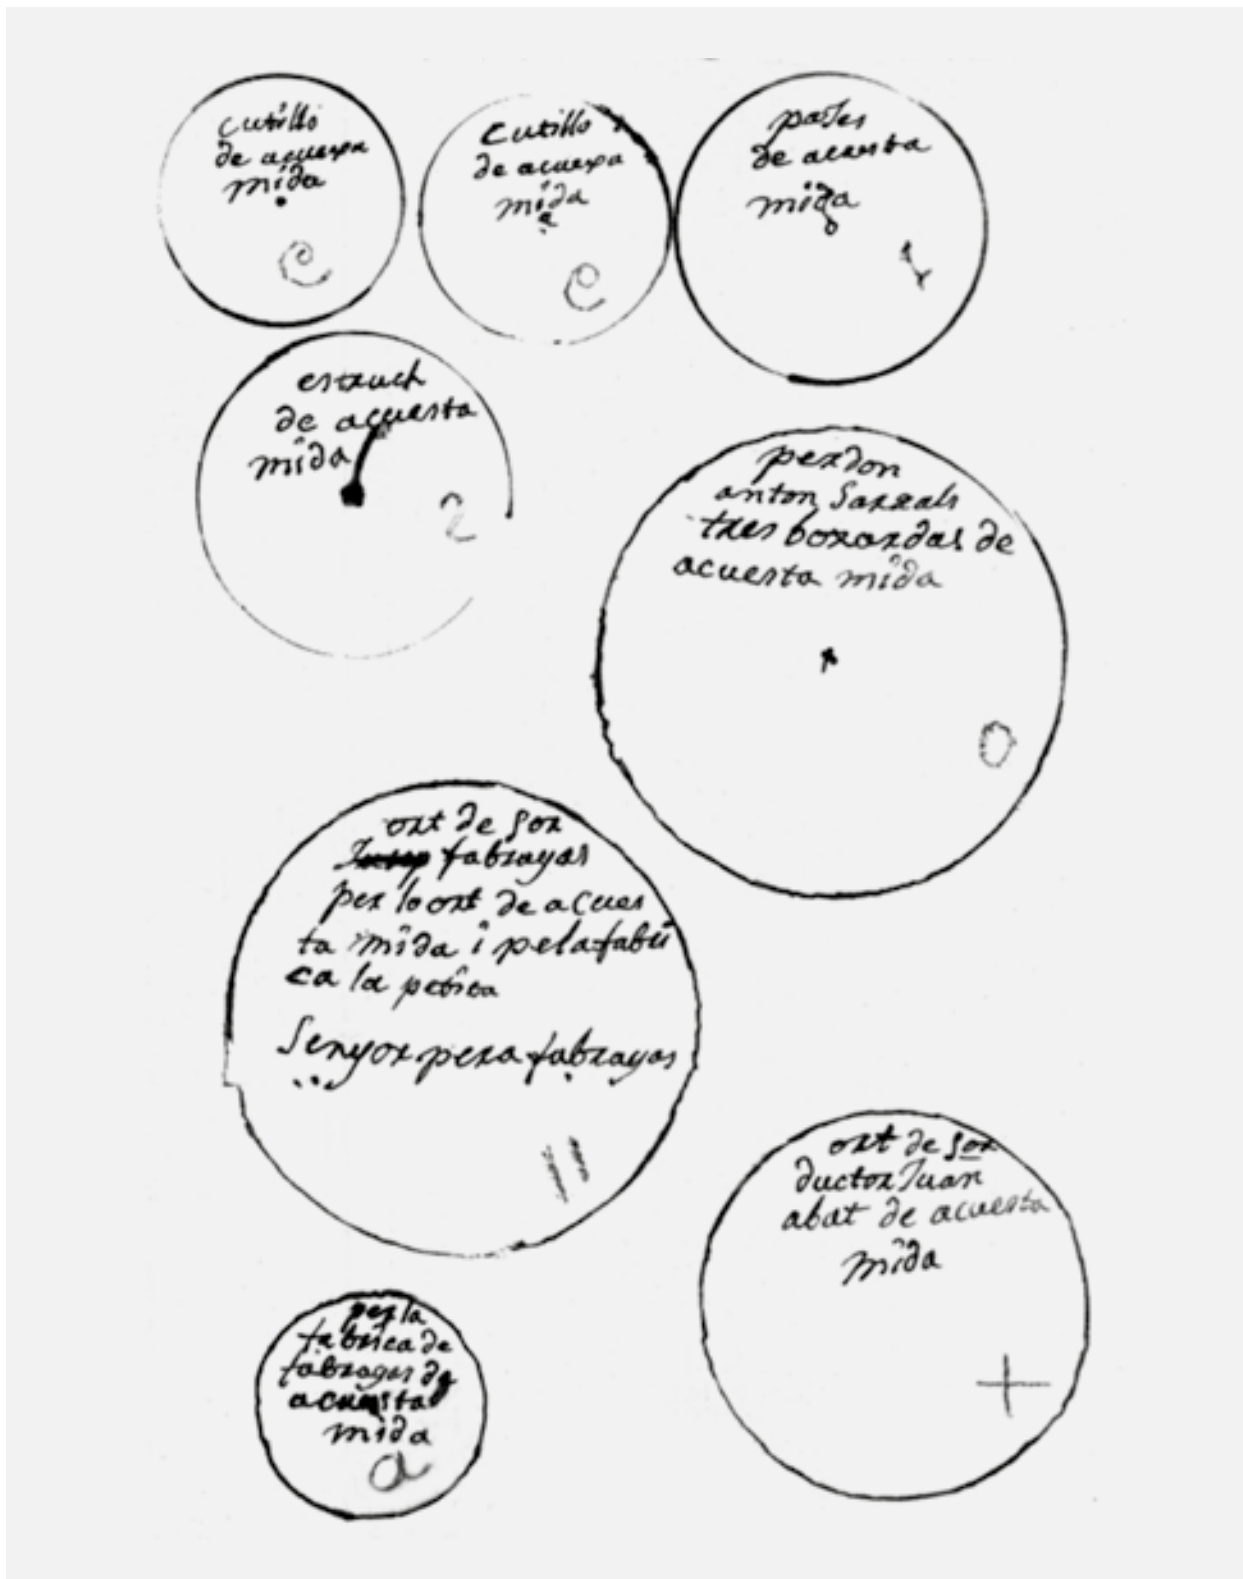 cutillo
de acuexpa
mida
e
cutillo
de acuexpa
mida
e
de acuesta
mida
1
estruch
de acuesta
mida
2
perdon
anton Sarrals
tres borardas de
acuesta mida
0
ort de sor
fabrayas
per lo ort de acues
ta mida i pela fabri
ca la petita
Senyor pera fabrayas
ort de sor
ductor Juan
abat de acuesta
mida
+
per la
fabrica de
fabragas de
acuesta
mida
a